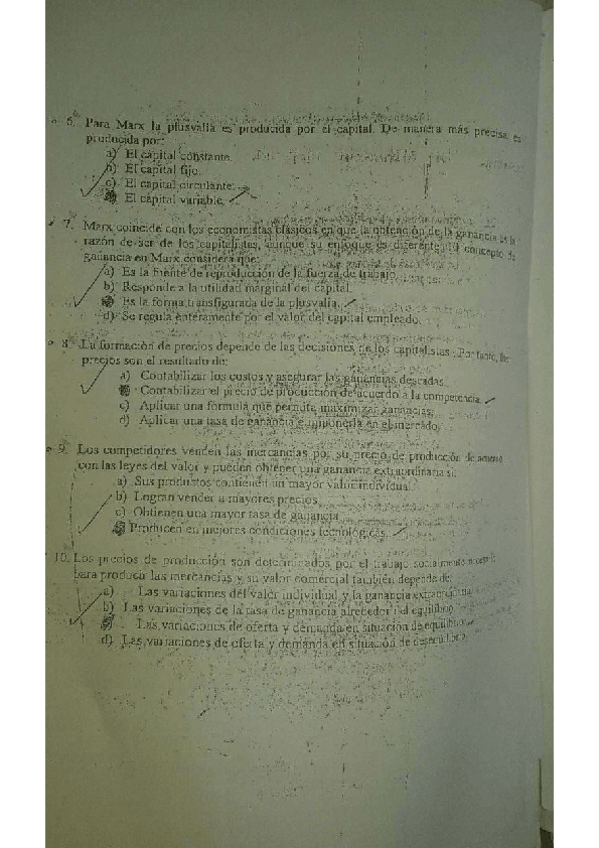 6. Para Marx la plusvalía es producida por el capital. De manera más precisa es
producida por:
a) El capital constante.
b) El capital fijo.
c) El capital circulante.
El capital variable.
7. Marx coincide con los economistas clásicos en que la obtención de la ganancia es la
razón de ser de los capitalistas, aunque su enfoque es diferente. El concepto de
ganancia en Marx considera que:
a) Es la fuente de reproducción de la fuerza de trabajo.
b) Responde a la utilidad marginal del capital.
Es la forma transfigurada de la plusvalía.
d) Se regula enteramente por el valor del capital empleado.
8. La formación de precios depende de las decisiones de los capitalistas. Por tanto, los
precios son el resultado de:
a) Contabilizar los costos y asegurar las ganancias deseadas.
Contabilizar el precio de producción de acuerdo a la competencia.
c) Aplicar una fórmula que permita maximizar ganancias.
d) Aplicar una tasa de ganancia e imponerla en el mercado.
9. Los competidores venden las mercancías por su precio de producción de acuerdo
con las leyes del valor y pueden obtener una ganancia extraordinaria si:
a) Sus productos contienen un mayor valor individual.
b) Logran vender a mayores precios.
c) Obtienen una mayor tasa de ganancia.
Producen en mejores condiciones tecnológicas.
10. Los precios de producción son determinados por el trabajo socialmente necesario
para producir las mercancías y su valor comercial también depende de:
a) Las variaciones del valor individual y la ganancia extraordinaria
b) Las variaciones de la tasa de ganancia alrededor del equilibrio
Las variaciones de oferta y demanda en situación de equilibrio
d) Las variaciones de oferta y demanda en situación de desequilibrio